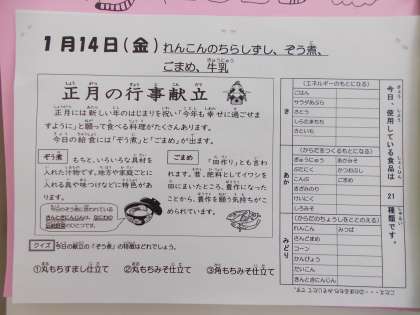 1月14日(金) れんこんのちらしずし、ぞう煮、
ごまめ、牛乳
正月の行事献立
正月には新しい年のはじまりを祝い「今年も幸せに過ごせま
すように」と願って食べる料理がたくさんあります。
今日の給食には「ぞう煮」と「ごまめ」が出ます。
ぞう煮
もちと、いろいろな具材を
入れた汁物です。地方や家庭ごとに
入れる具や味つけなどに特色があ
ります。
ごまめ
「田作り」とも言わ
れます。昔、肥料としてイワシを
田にまいたところ、豊作になった
ことから、豊作を願う気持ちがこ
められています。
クイズ 今日の献立の「ぞう煮」の特徴はどれでしょう。
①丸もちすまし仕立て ②丸もちみそ仕立て ③角もちみそ仕立て
今日、使用している食品は
21
種類です。
き
(エネルギーのもとになる)
ごはん
サラダあぶら
さとう
しらたまもち
さといも
あか
(からだをつくるもとになる)
ぎゅうにゅう
あかみそ
ぶたにく
かつおぶし
こんぶ
ごまめ
しろみそ
みどり
(からだのちょうしをととのえる)
れんこん
みつば
コーン
かんぴょう
だいこん
きんときにんじん